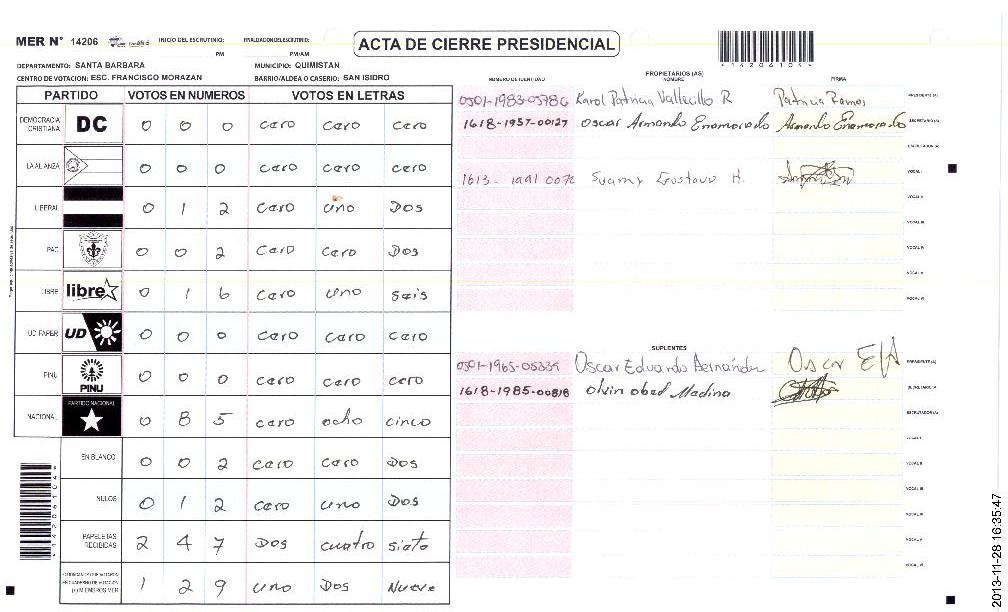 MER N° 14206 INICIO DEL ESCRUTINIO: FINALIZACION DEL ESCRUTINIO:
PM PM/AM
ACTA DE CIERRE PRESIDENCIAL
*14206104*
DEPARTAMENTO: SANTA BARBARA MUNICIPIO: QUIMISTAN
CENTRO DE VOTACION: ESC. FRANCISCO MORAZAN BARRIO/ALDEA O CASERIO: SAN ISIDRO
PARTIDO VOTOS EN NUMEROS VOTOS EN LETRAS
DEMOCRACIA CRISTIANA DC 0 0 0 caro caro caro
LA ALIANZA 0 0 0 caro caro caro
LIBERAL 0 1 2 caro uno Dos
PAC 0 0 2 caro caro Dos
LIBRE libre 0 1 6 caro uno sais
UD FAPER UD 0 0 0 caro caro caro
PINU PINU 0 0 0 caro caro caro
NACIONAL PARTIDO NACIONAL 0 8 5 caro ocho cinco
EN BLANCO 0 0 2 caro caro Dos
NULOS 0 1 2 caro uno Dos
PAPELETAS RECIBIDAS 2 4 7 Dos cuatro siete
1 2 9 uno Dos Nueve
PROPIETARIOS (AS)
NUMERO DE IDENTIDAD NOMBRE FIRMA
0501-1983-05786 Karol Patricia Vallecillo R Patricia Ramos PRESIDENTE (A)
1618-1957-00127 Oscar Armando Enamorado Armando Enamorado SECRETARIO (A)
ESCRUTADOR (A)
Gustavo H. VOCAL I
VOCAL II
VOCAL III
VOCAL IV
VOCAL V
VOCAL VI
SUPLENTES
0501-1965-05339 Oscar Eduardo Hernández Oscar EH PRESIDENTE (A)
1618-1985-00818 olvin obed Madina SECRETARIO (A)
ESCRUTADOR (A)
VOCAL I
VOCAL II
VOCAL III
VOCAL IV
VOCAL V
VOCAL VI
2013-11-28 16:35:47